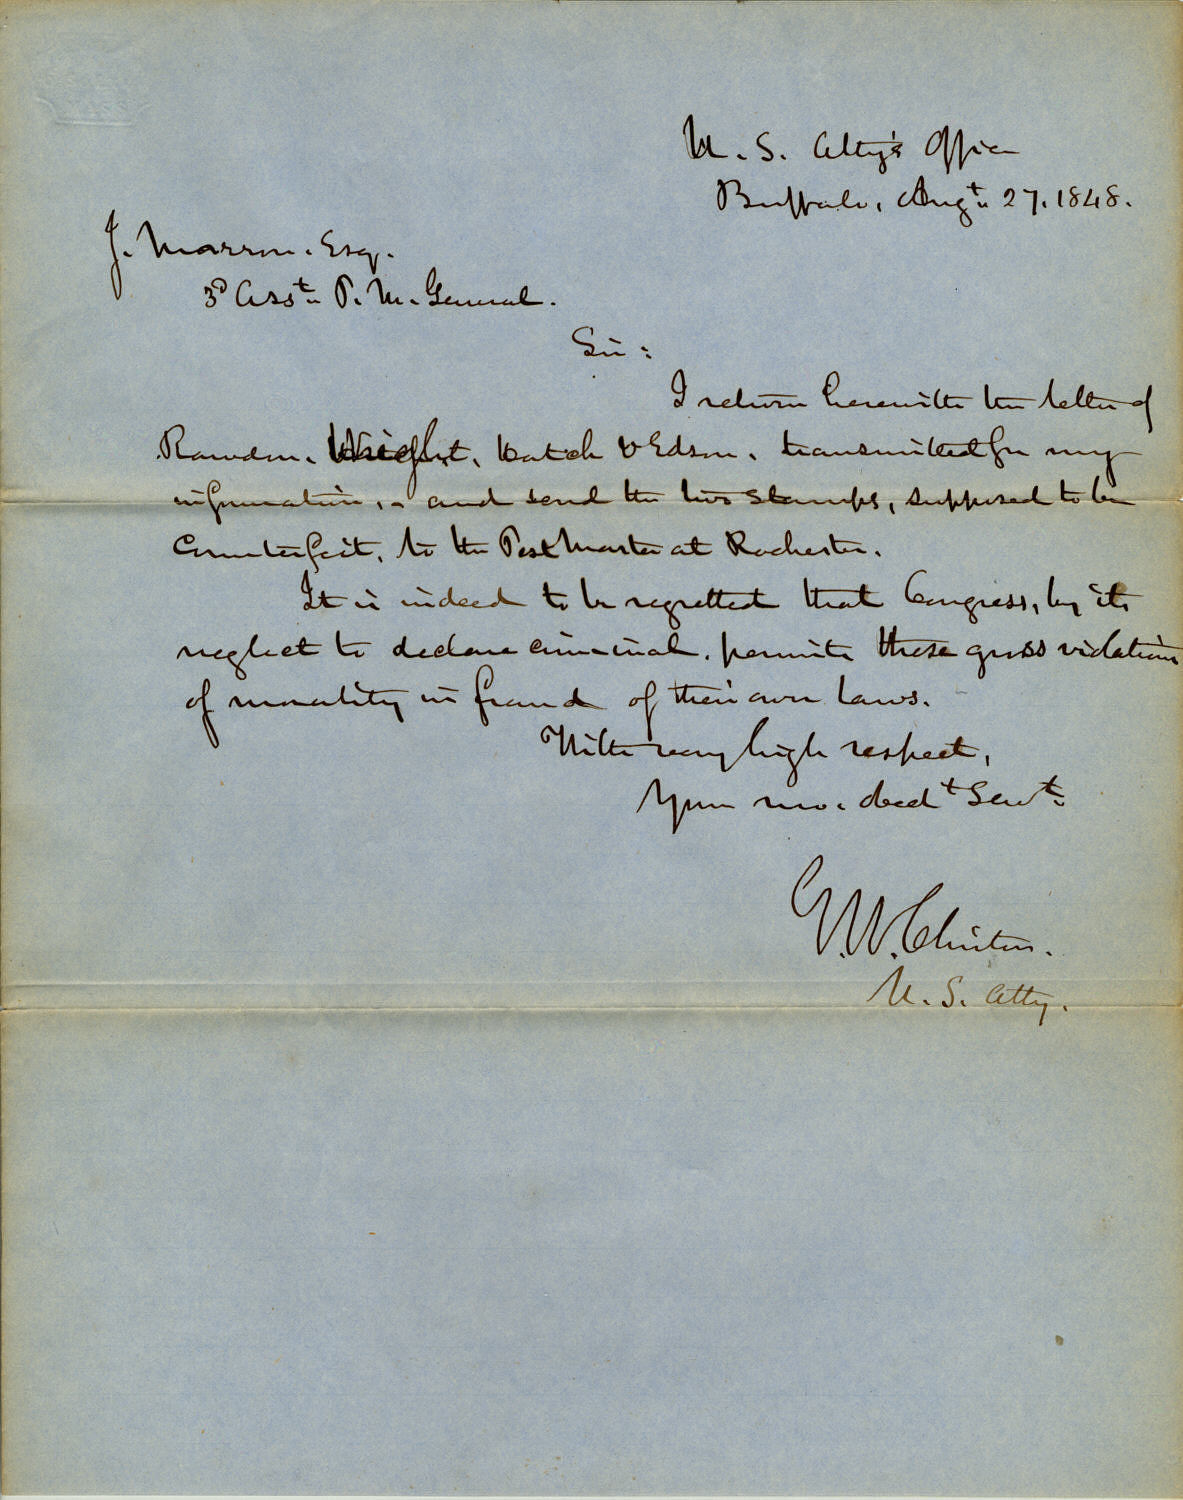 U. S. Atty's Office
Buffalo, Augt. 27. 1848.
J. Marron. Esq.
3d Asst. P. M. General.
Sir:
I return herewith the letter of
Rawdon, Wright, Hatch & Edson, transmitted for my
information, - and send the two stamps, supposed to be
counterfeit, to the Post Master at Rochester.
It is indeed to be regretted that Congress, by its
neglect to declare criminal, permits these gross violations
of morality in fraud of their own laws.
With very high respect,
Your mo. obedt Servt.
G. W. Clinton.
U. S. Atty.